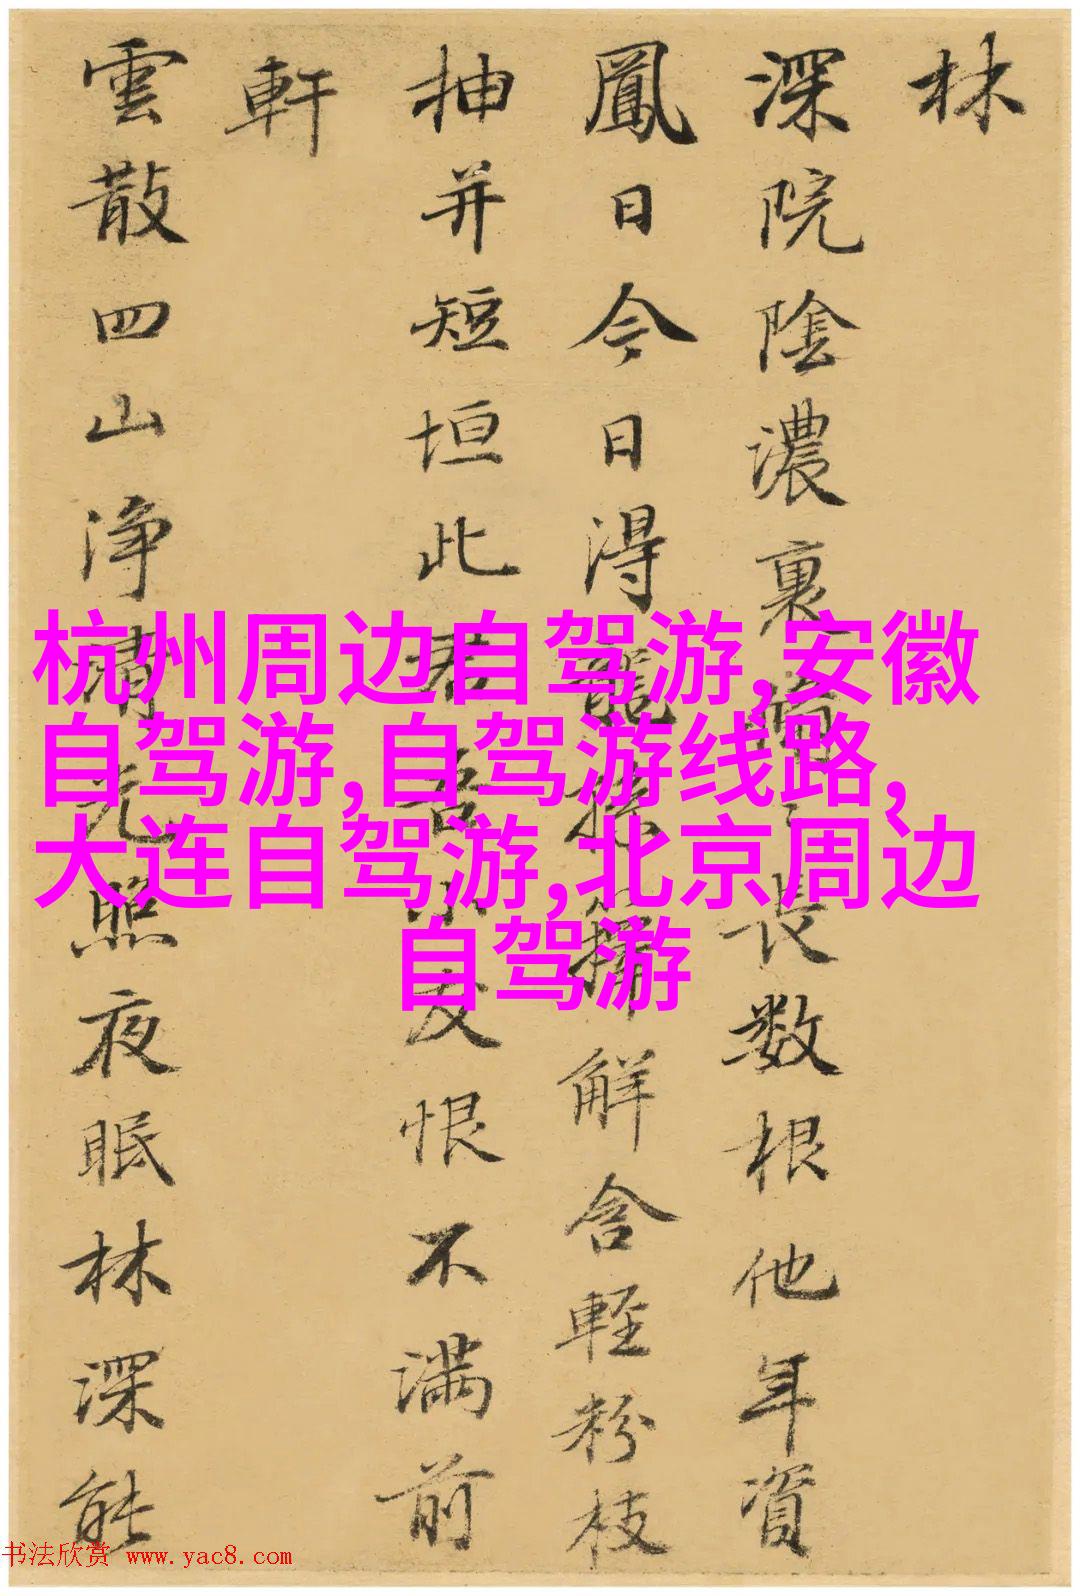 林
深院陰濃裏脩〻長数根他年資
鳳日今日得龍孫籜解含輕粉枝
抽并短垣此君吾小友恨不满前
軒
雲散四山净清光照夜眠林深能
杭州周边自驾游,安徽
自驾游,自驾游线路,
大连自驾游,北京周边
自驾游
书法欣赏 www.yac8.com